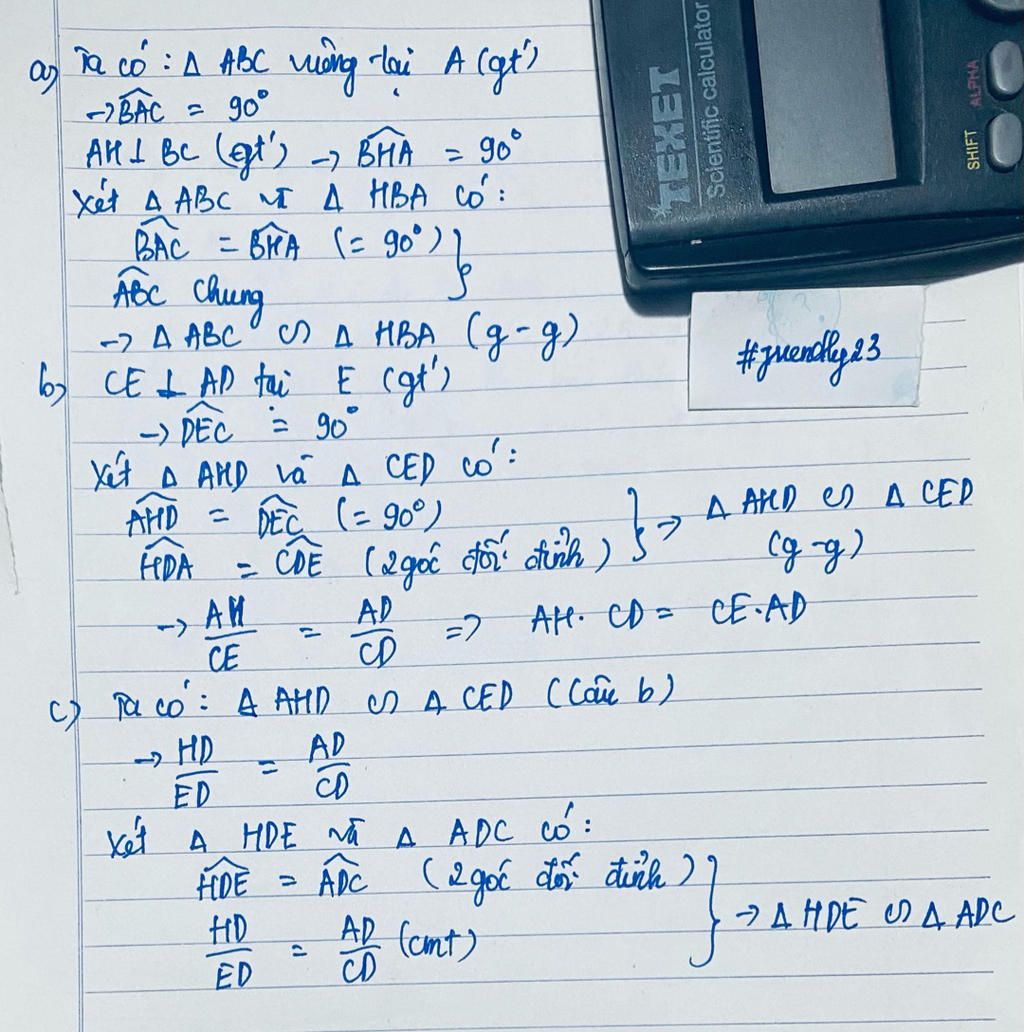 a) Ta có: Δ ABC vuông tại A (gt)
→ \widehat{BAC} = 90°
AH ⊥ BC (gt) → \widehat{BHA} = 90°
Xét Δ ABC và Δ HBA có:
\widehat{BAC} = \widehat{BHA} (= 90°) }
\widehat{ABC} chung
→ Δ ABC ∽ Δ HBA (g-g)
b) CE ⊥ AD tại E (gt)
→ \widehat{DEC} = 90°
Xét Δ AHD và Δ CED có:
\widehat{AHD} = \widehat{DEC} (= 90°)
\widehat{HDA} = \widehat{CDE} (2 góc đối đỉnh) } → Δ AHD ∽ Δ CED
(g-g)
→ AH/CE = AD/CD => AH. CD = CE.AD
c) Ta có: Δ AHD ∽ Δ CED (Câu b)
→ HD/ED = AD/CD
Xét Δ HDE và Δ ADC có:
\widehat{HDE} = \widehat{ADC} (2 góc đối đỉnh)
HD/ED = AD/CD (cmt) } → Δ HDE ∽ Δ ADC
*TEXET
Scientific calculator
SHIFT
ALPHA